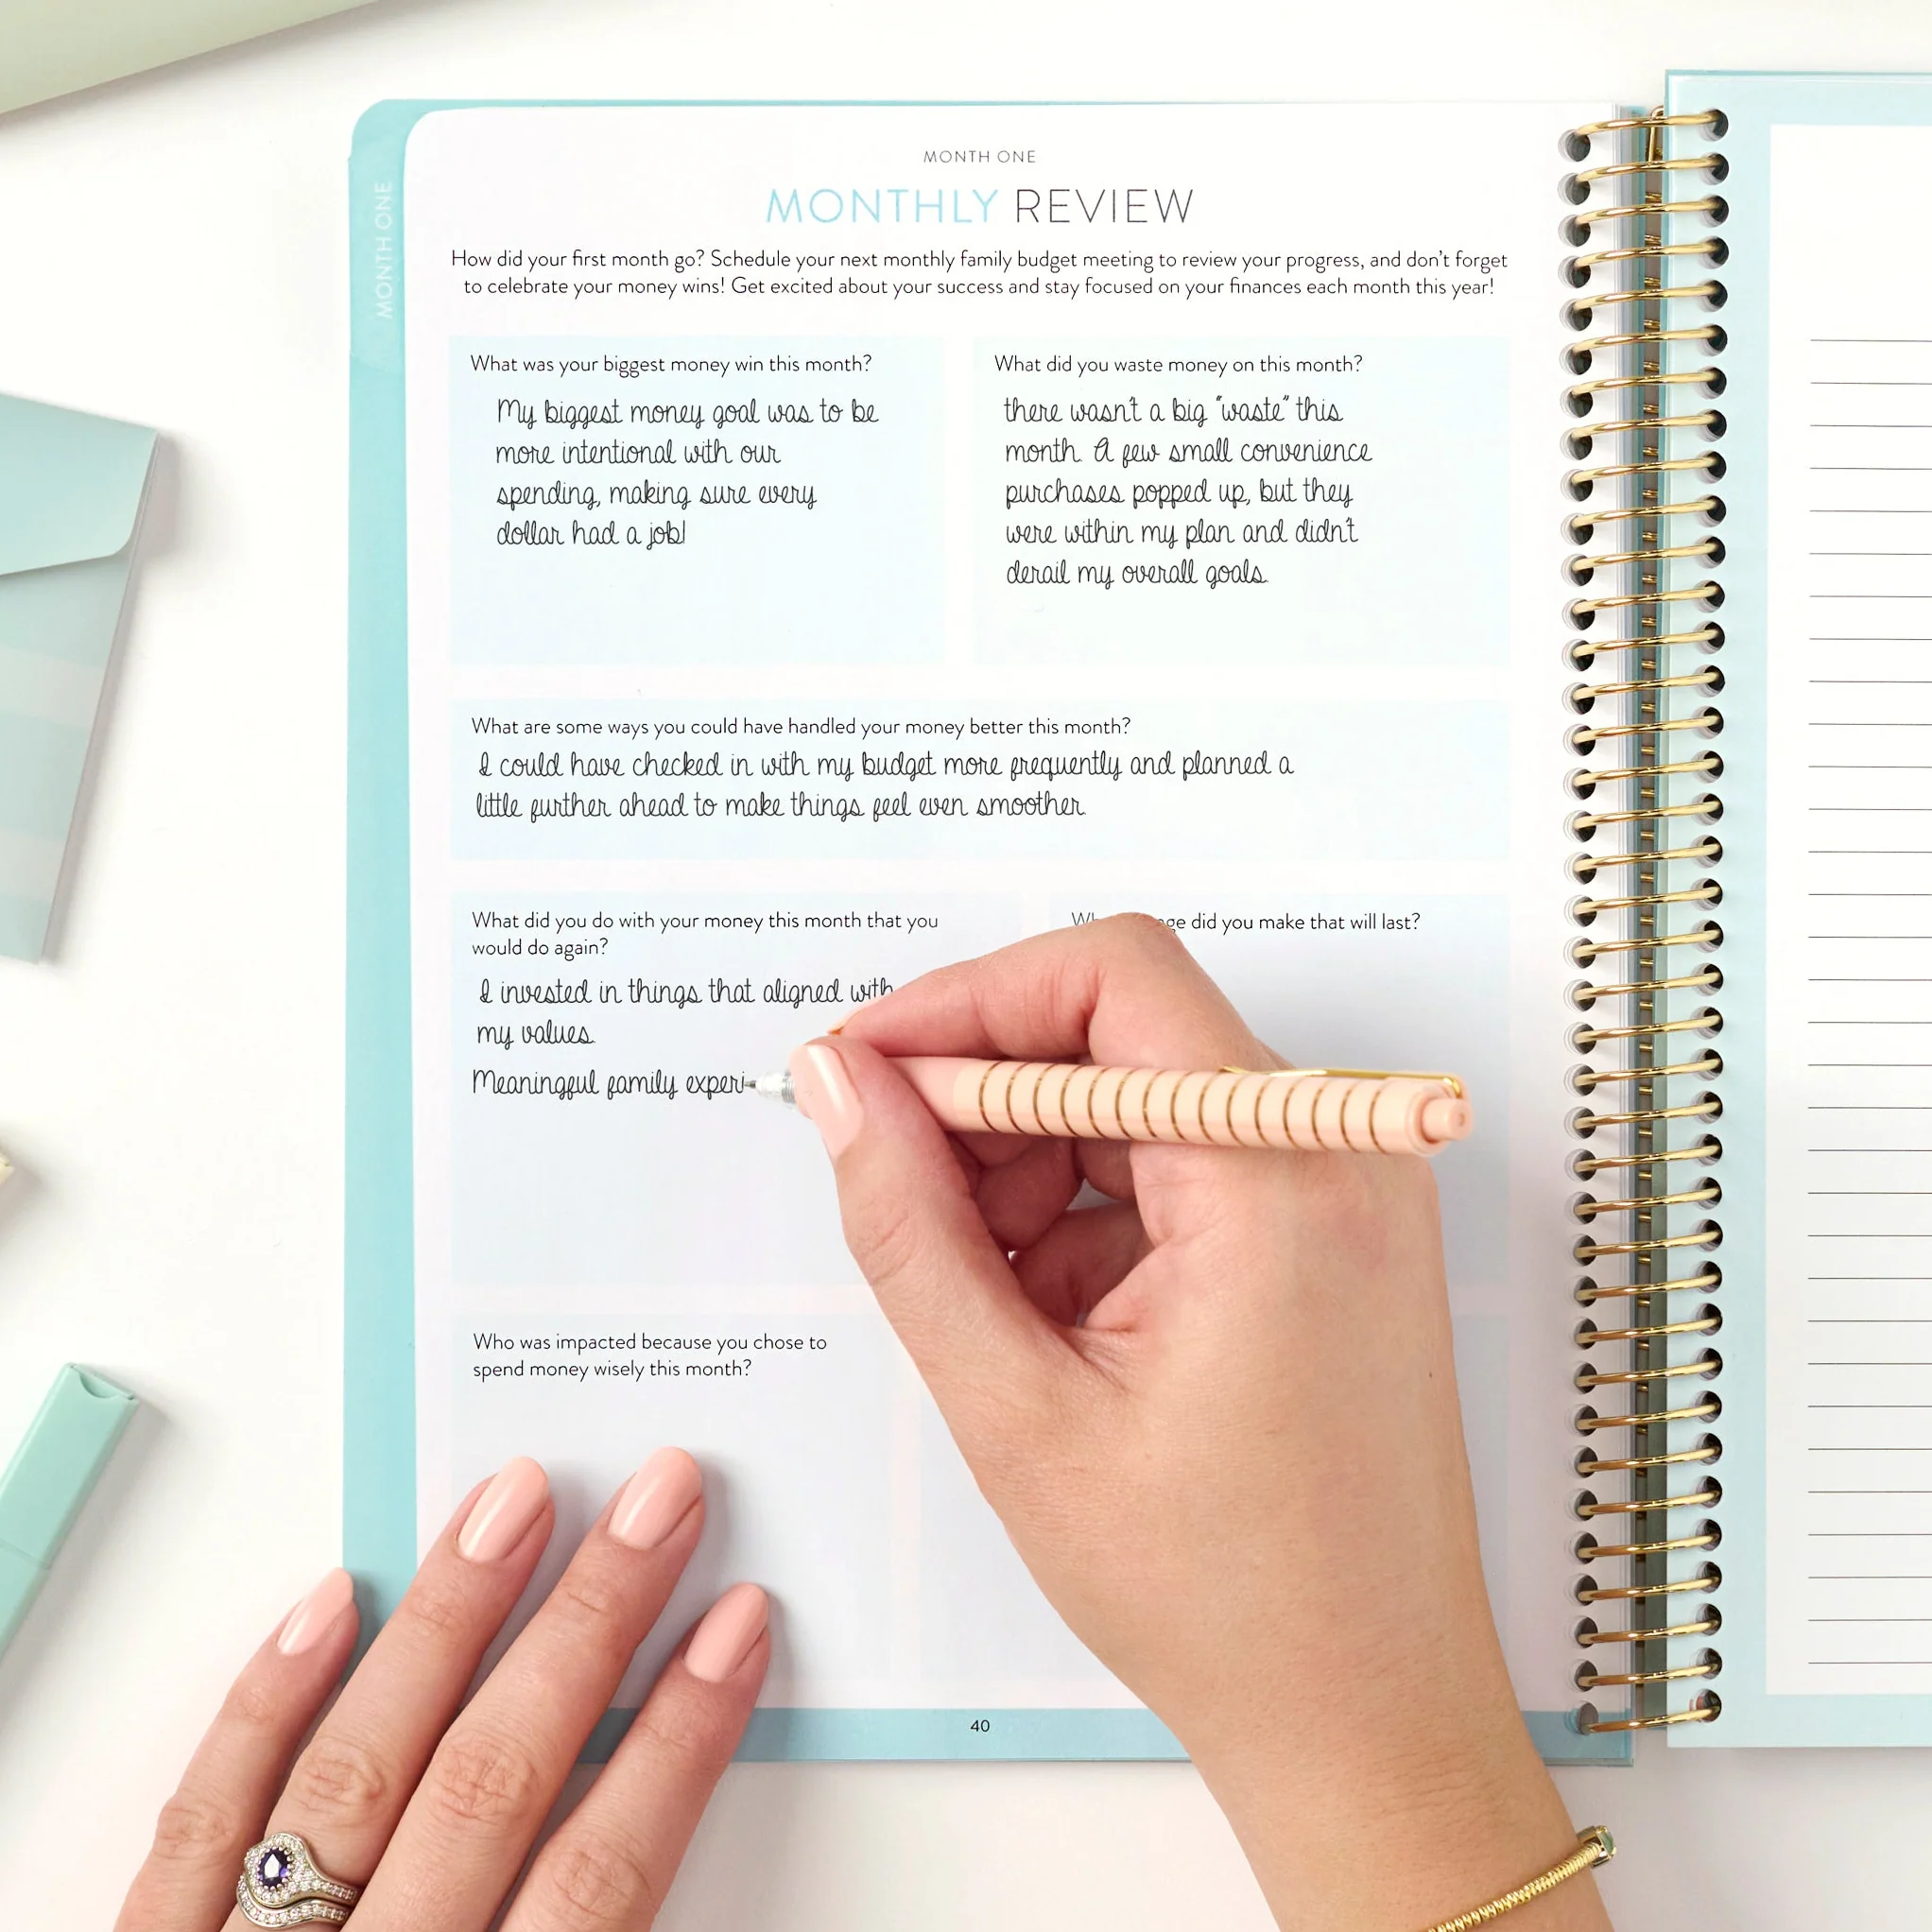 MONTH ONE
MONTH ONE
MONTHLY REVIEW
How did your first month go? Schedule your next monthly family budget meeting to review your progress, and don't forget
to celebrate your money wins! Get excited about your success and stay focused on your finances each month this year!
What was your biggest money win this month?
My biggest money goal was to be
more intentional with our
spending, making sure every
dollar had a job!
What did you waste money on this month?
there wasn't a big "waste" this
month. A few small convenience
purchases popped up, but they
were within my plan and didn't
derail my overall goals.
What are some ways you could have handled your money better this month?
I could have checked in with my budget more frequently and planned a
little further ahead to make things feel even smoother.
What did you do with your money this month that you
would do again?
I invested in things that aligned with
my values.
Meaningful family experi
did you make that will last?
Who was impacted because you chose to
spend money wisely this month?
40